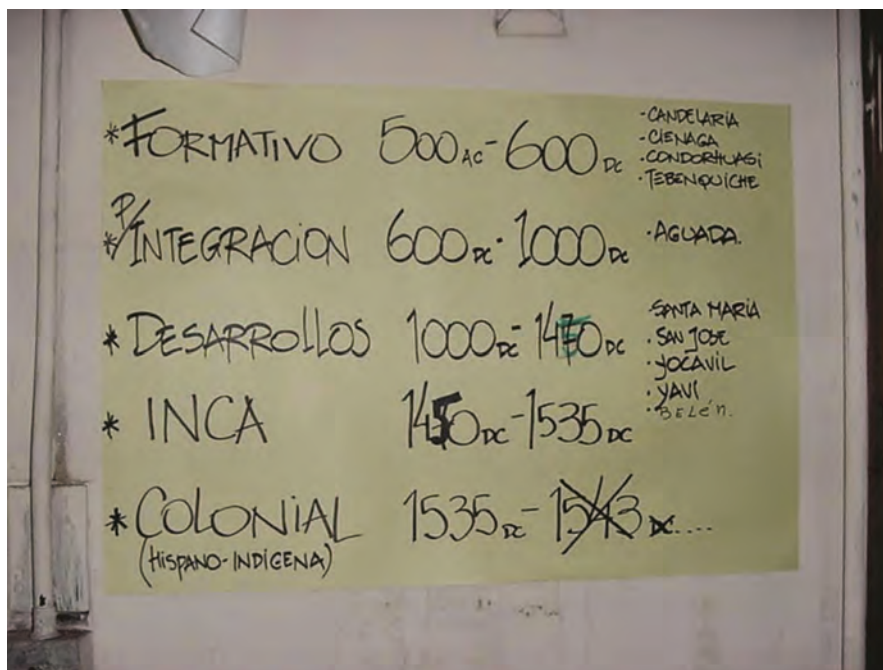 *FORMATIVO 500 AC - 600 DC
·CANDELARIA
·CIENAGA
·CONDORHUASI
·TEBENQUICHE
*P/INTEGRACION 600 DC · 1000 DC
·AGUADA.
*DESARROLLOS 1000 DC - 1450 DC
·SANTA MARIA
·SAN JOSE
·YOCAVIL
·YAVI
·BELÉN.
*INCA 1450 DC - 1535 DC
*COLONIAL 1535 DC - 1543 DC....
(HISPANO-INDIGENA)